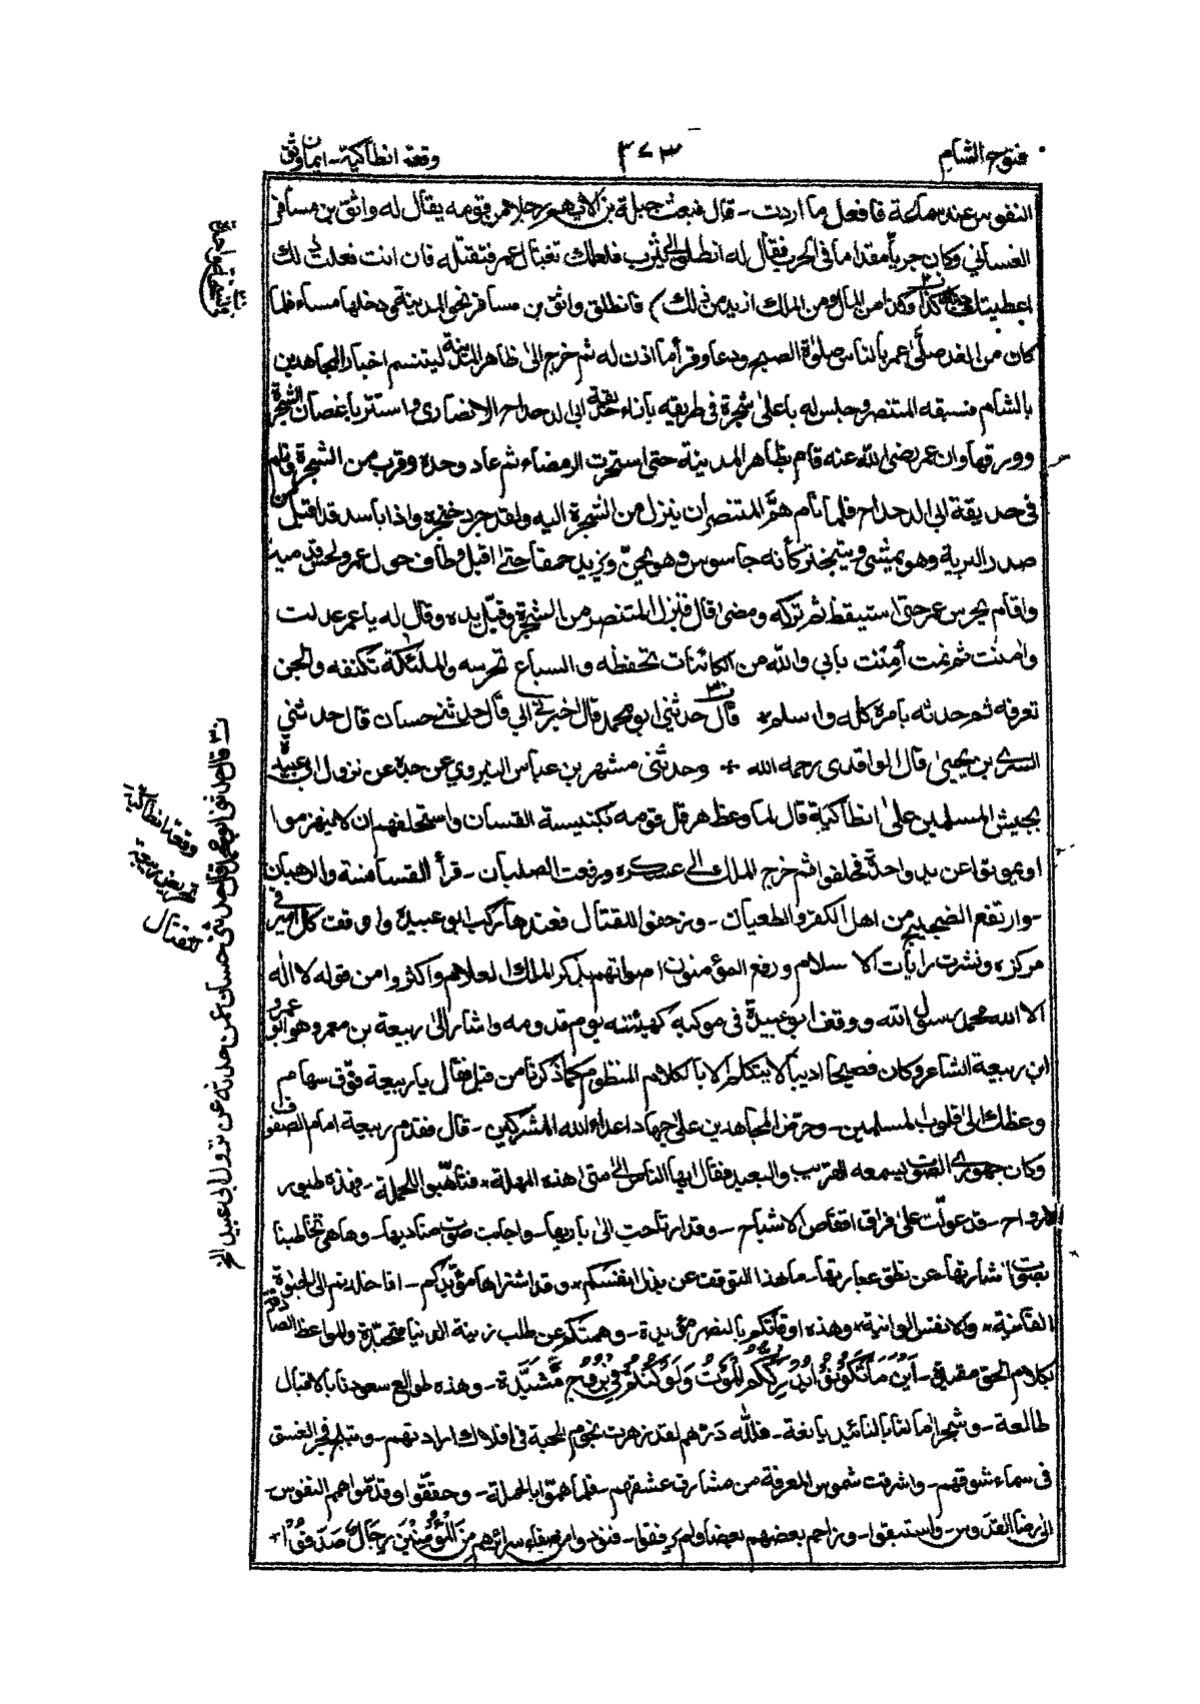 فتوح الشام
٣٧٣
وقعة انطاكية - ايمان واثق
النفوس عند سماعة فافعل ما اردت - قال فبعث جبلة بن الايهم رجلا من قومه يقال له واثق بن مسافر
الغساني وكان جريأ مقداما فى الحرب فقال له انطلق الى يثرب فلعلك تغتال عمر فتقتله فان انت فعلت ذلك
اعطيتك كذا وكذا من المال ومن الملك ازيد من ذلك) فانطلق واثق بن مسافر نحو المدينة ودخلها مساء فلما
كان من الغد صلى عمر بالناس صلوة الصبح ودعا وقرأ ما اذن له ثم خرج الى ظاهر المدينة ليتنسم اخبار المجاهدين
بالشام فسبقه المتنصر وجلس له باعلى شجرة فى طريقه بازاء حديقة ابى الدحداح الانصارى واستتر باغصان الشجرة
وورقها وان عمر رضى الله عنه قام بظاهر المدينة حتى استحرت الرمضاء ثم عاد وحده وقرب من الشجرة ونام
فى حديقة ابى الدحداح فلما نام هم المتنصر ان ينزل من الشجرة اليه ولقد جرد خنجره واذا باسد قد اقبل من
صدر البرية وهو يمشى ويتبختر كأنه جاسوس وهو يحن ويزيد حمقا حتى اقبل وطاف حول عمر ولحس قدميه
واقام يحرس عمر حتى استيقظ ثم تركه ومضى قال فنزل المتنصر من الشجرة وقبل يده وقال له يا عمر عدلت
وامنت ثم نمت أمنت بابي والله من الكائنات تحفظه والسباع تحرسه والملئكة تكنفه والجن
تعرفه ثم حدثه بامره كله واسلم * قال حدثنى ابو محمد قال اخبرني ابي قال حدثنى حسان قال حدثني
السرى بن يحيى قال الواقدى رحمه الله * وحدثنى مشهر بن عباس النيروي عن جده عن نزول ابى عبيدة
بجيش المسلمين على انطاكية قال لما وعظ هرقل قومه بكنيسة القسان واستحلفهم ان لا ينهزموا
او يموتوا عن يد واحدة فحلفوا ثم خرج الملك الى عسكره ورفعت الصلبان - قرأ القسامنة والرهبان
- وارتفع الضجيج من اهل الكفر والطغيان - وزحفوا للقتال فعندها ركب ابو عبيدة واوقف كل امير فى
مركزه ونشرت رايات الاسلام ورفع المؤمنون اصواتهم بذكر الملك العلام واكثروا من قوله لا اله
الا الله محمد رسول الله ووقف ابو عبيدة فى موكبه كهيئته يوم قدومه واشار الى ربيعة بن معمر وهو ابو عمرو
ابن ربيعة الشاعر وكان فصيحا اديبا لا يتكلم الا بالكلام المنظوم كما ذكرنا من قبل فقال يا ربيعة فوق سهام
وعظك الى قلوب المسلمين - وحرض المجاهدين على جهاد اعداء الله المشركين - قال فقدم ربيعة امام الصفوف
وكان جهورى الصوت يسمعه القريب والبعيد فقال ايها الناس الى متى هذه المهلة * فتأهبوا للحملة - فهذه طيور
الارواح - قد عولت على فراق اقفاص الاشباح - وقد ارتاحت الى باريها - واجابت صوت مناديها - وهاهى تخاطبنا
بصوت اشارتها - عن نطق عبارتها - ما هذا التوقف عن بذل انفسكم * وقد اشتراها مؤيدكم - افاخلدتم الى الحيوة
الفانية * والانفس الوانية * وهذه اوقاتكم بالنصر مؤيدة - وهمتكم عن طلب زينة الدنيا متجردة والمواعظ الصادقة
بكلام الحق مقيدة - أَيْنَ مَا تَكُونُوْا يُدْرِكْكُّمُ الْمَوْتُ وَلَوْ كُنْتُمْ فِيْ بُرُوْجٍ مُّشَيَّدَة - وهذه طوالع سعودنا بالاقبال
طالعة - وشجر امالنا بالتائيد يانعة - فلله درهم لقد زهرت نجوم المحبة فى افلاك ارادتهم - وتبلج فجر العشق
فى سماء شوقهم - واشرقت شموس المعرفة من مشارق عشقهم - فلما هموا بالحملة - وحققوا وقدموا هم النفوس -
الى رضا القدوس - واستبقوا - وزاحم بعضهم بعضا ولم يرفقوا - فنودوا من صفاء سرائرهم مِنَ الْمُؤْمِنِيْنَ رِجَالٌ صَدَقُوْا *
ن٣ قال حدثنى ابو محمد قال حدثنى حسان عمن حدثه عن نزول ابى عبيدة الخ
وقعة انطاكية
تحريض ربيعة
للقتال